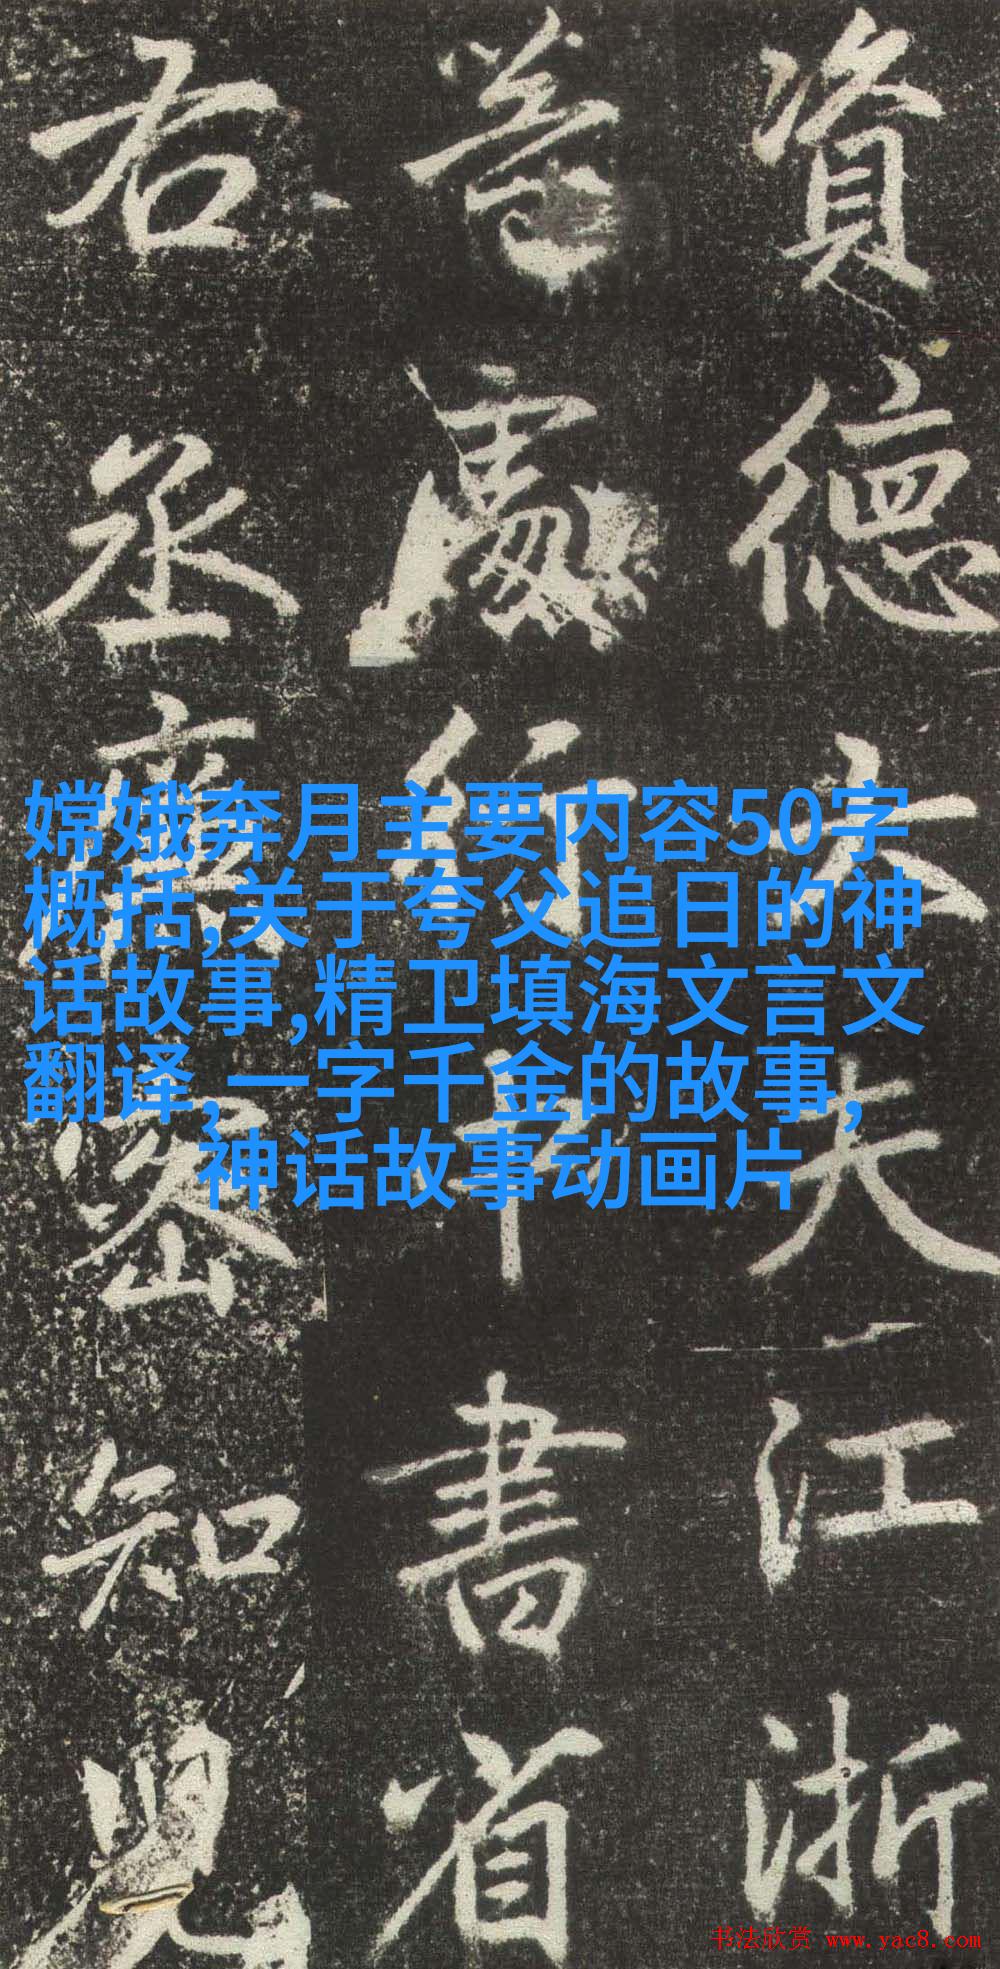 資德大夫江浙
等處行中書省
右丞廉密知兒
嫦娥奔月主要内容50字
概括,关于夸父追日的神
话故事,精卫填海文言文
翻译,一字千金的故事,
神话故事动画片
书法欣赏 www.yac8.com